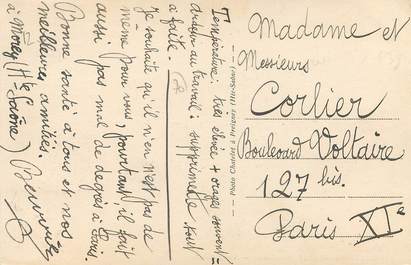 Température : très élevée + orages souvent =
ardeur au travail : supprimable tout
à faite.
Je souhaite qu'il n'en n'est pas de
même pour vous, pourtant, il fait
aussi pas mal de degrés à Paris.
Bonne santé à tous et nos
meilleures amitiés.
à Morey (Hte Saône)
Madame et
Messieurs
Corlier
Boulevard Voltaire
127 bis.
Paris XIe